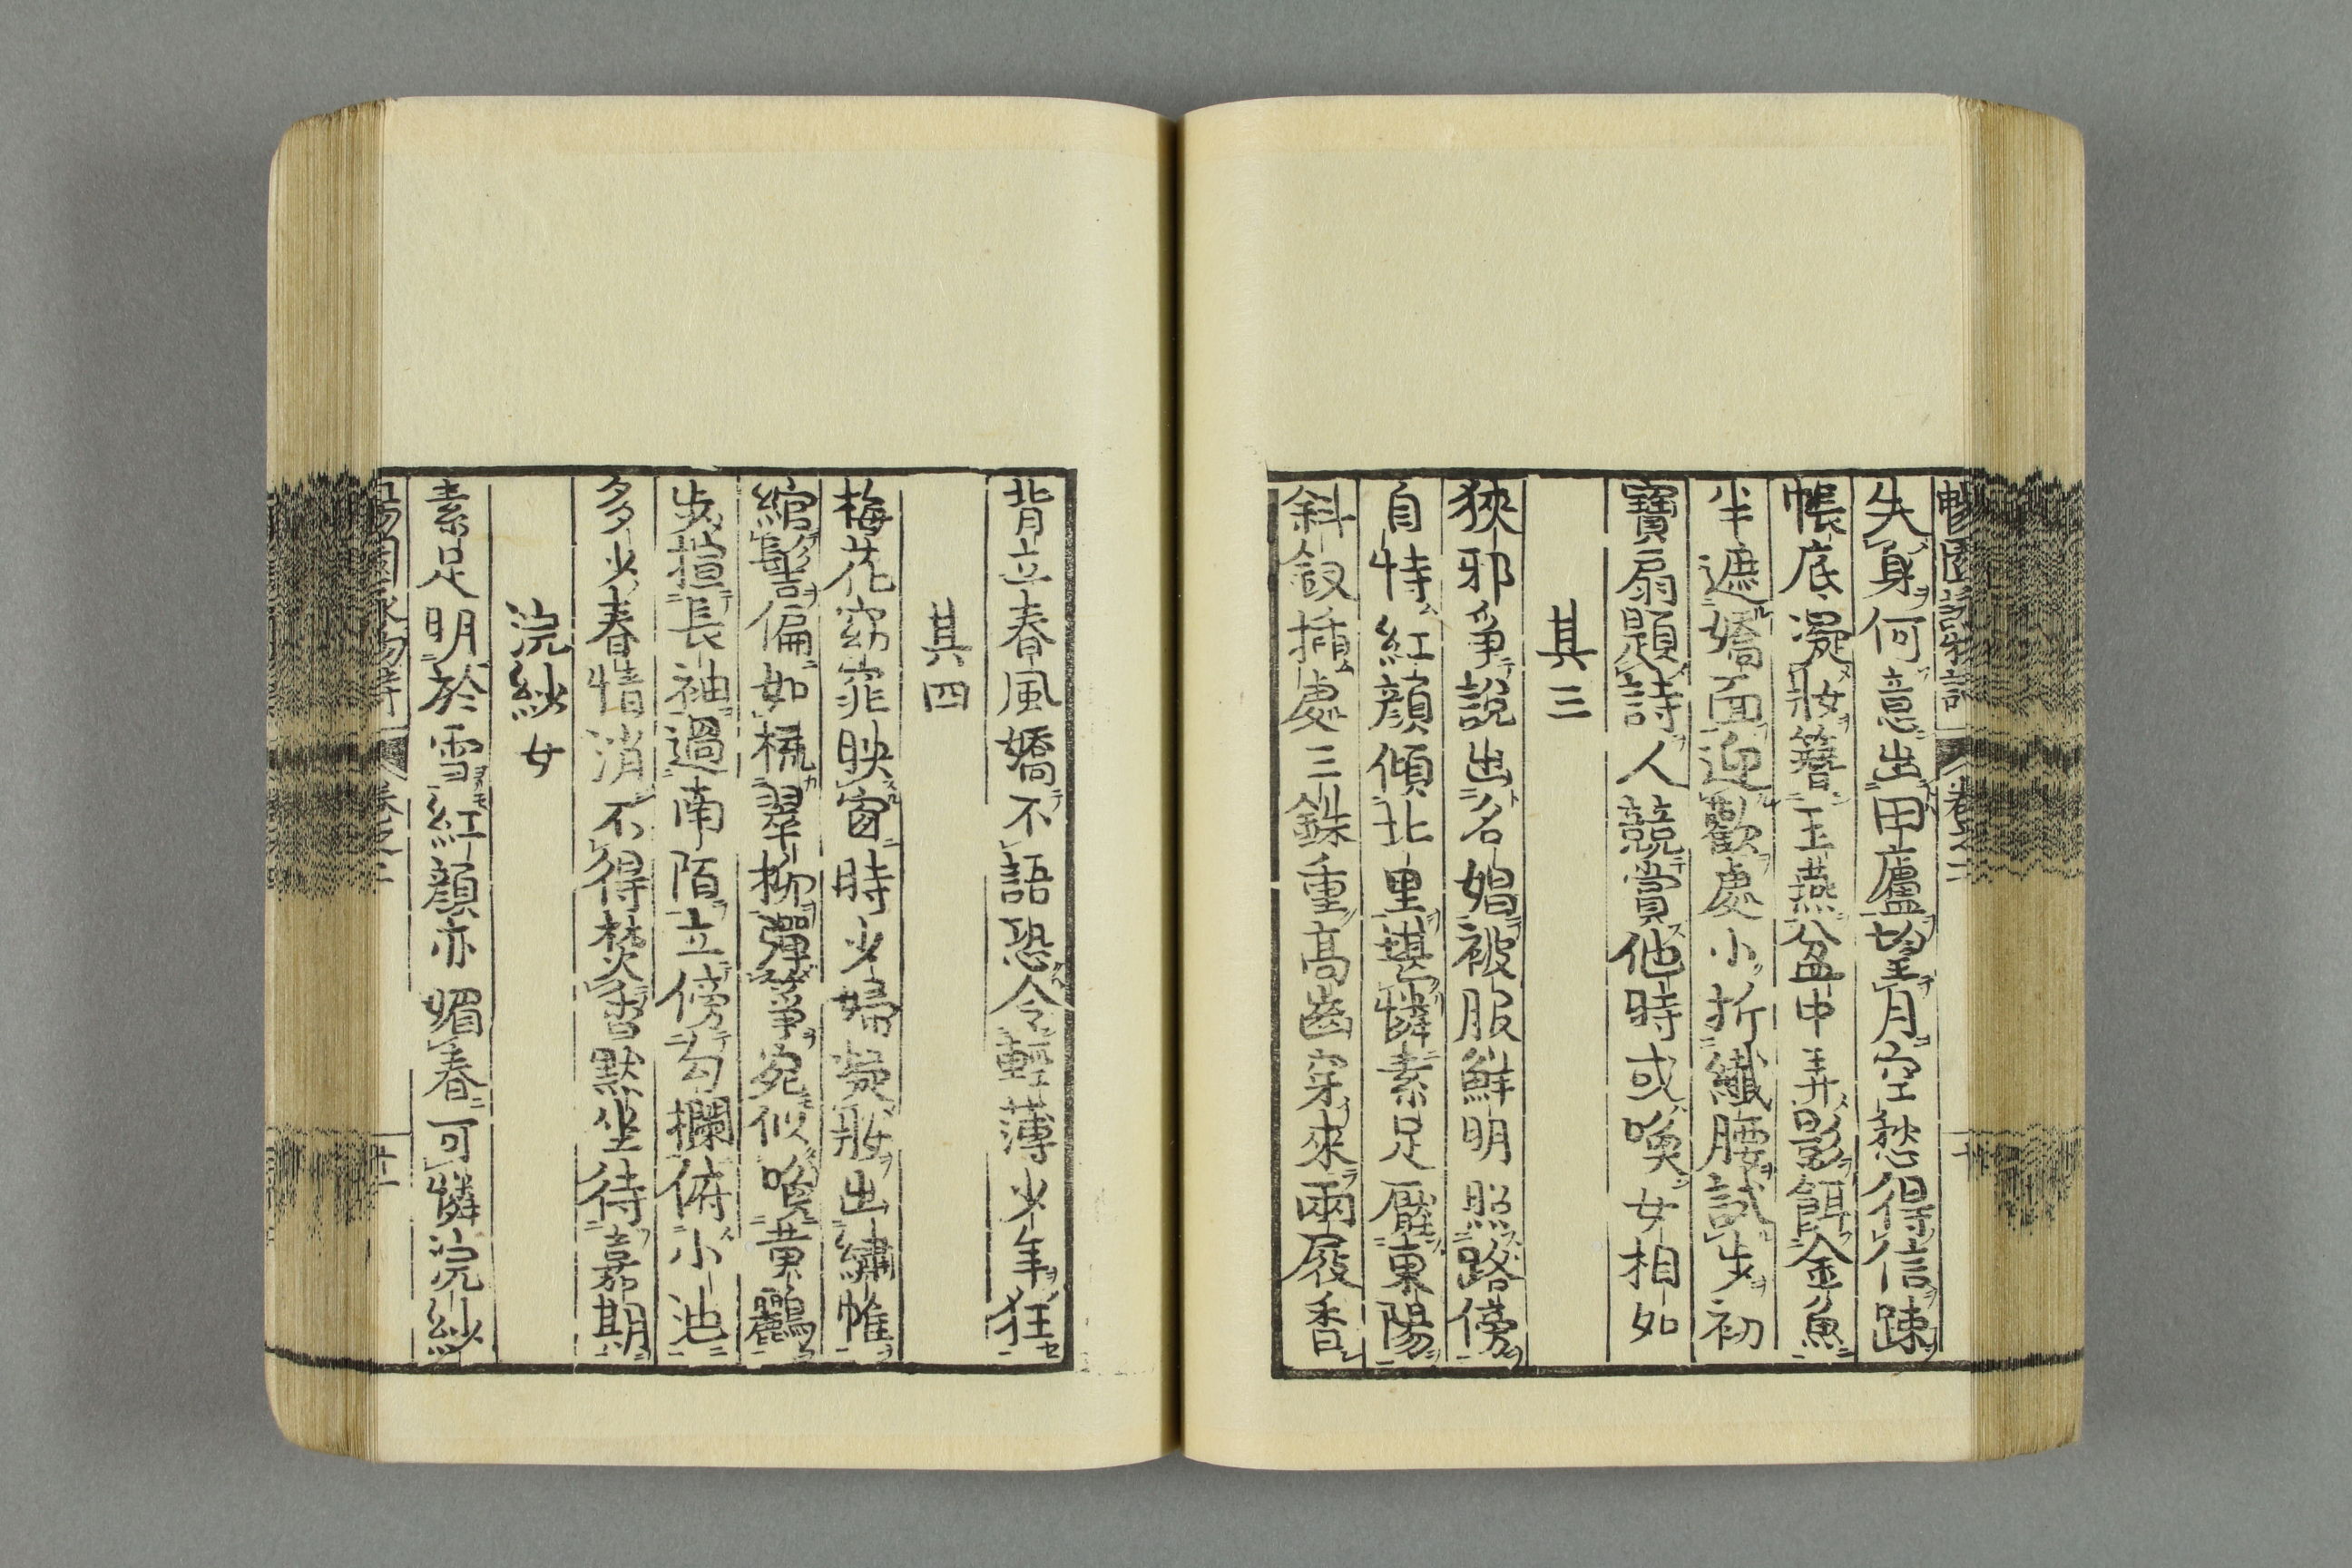 失身何意出田廬望月空愁得信踈
帳底凝妝簪玉燕盆中弄影餌金魚
半遮嬌面迎歡處小折纖腰試步初
寶扇題詩人競賞他時或喚女相如
其三
狹邪爭說出名娼被服鮮明照路傍
自恃紅顏傾北里堪憐素足屧東陽
斜釵插處三銖重高齒穿來兩屐香
背立春風嬌不語恐令輕薄少年狂
其四
梅花窈窕映窗時少婦凝妝出繡帷
綰髻偏如梳翠柳彈箏宛似喚黃鸝
步揎長袖過南陌立傍勾欄俯小池
多少春情消不得焚香默坐待嘉期
浣紗女
素足明於雪紅顏亦媚春可憐浣紗